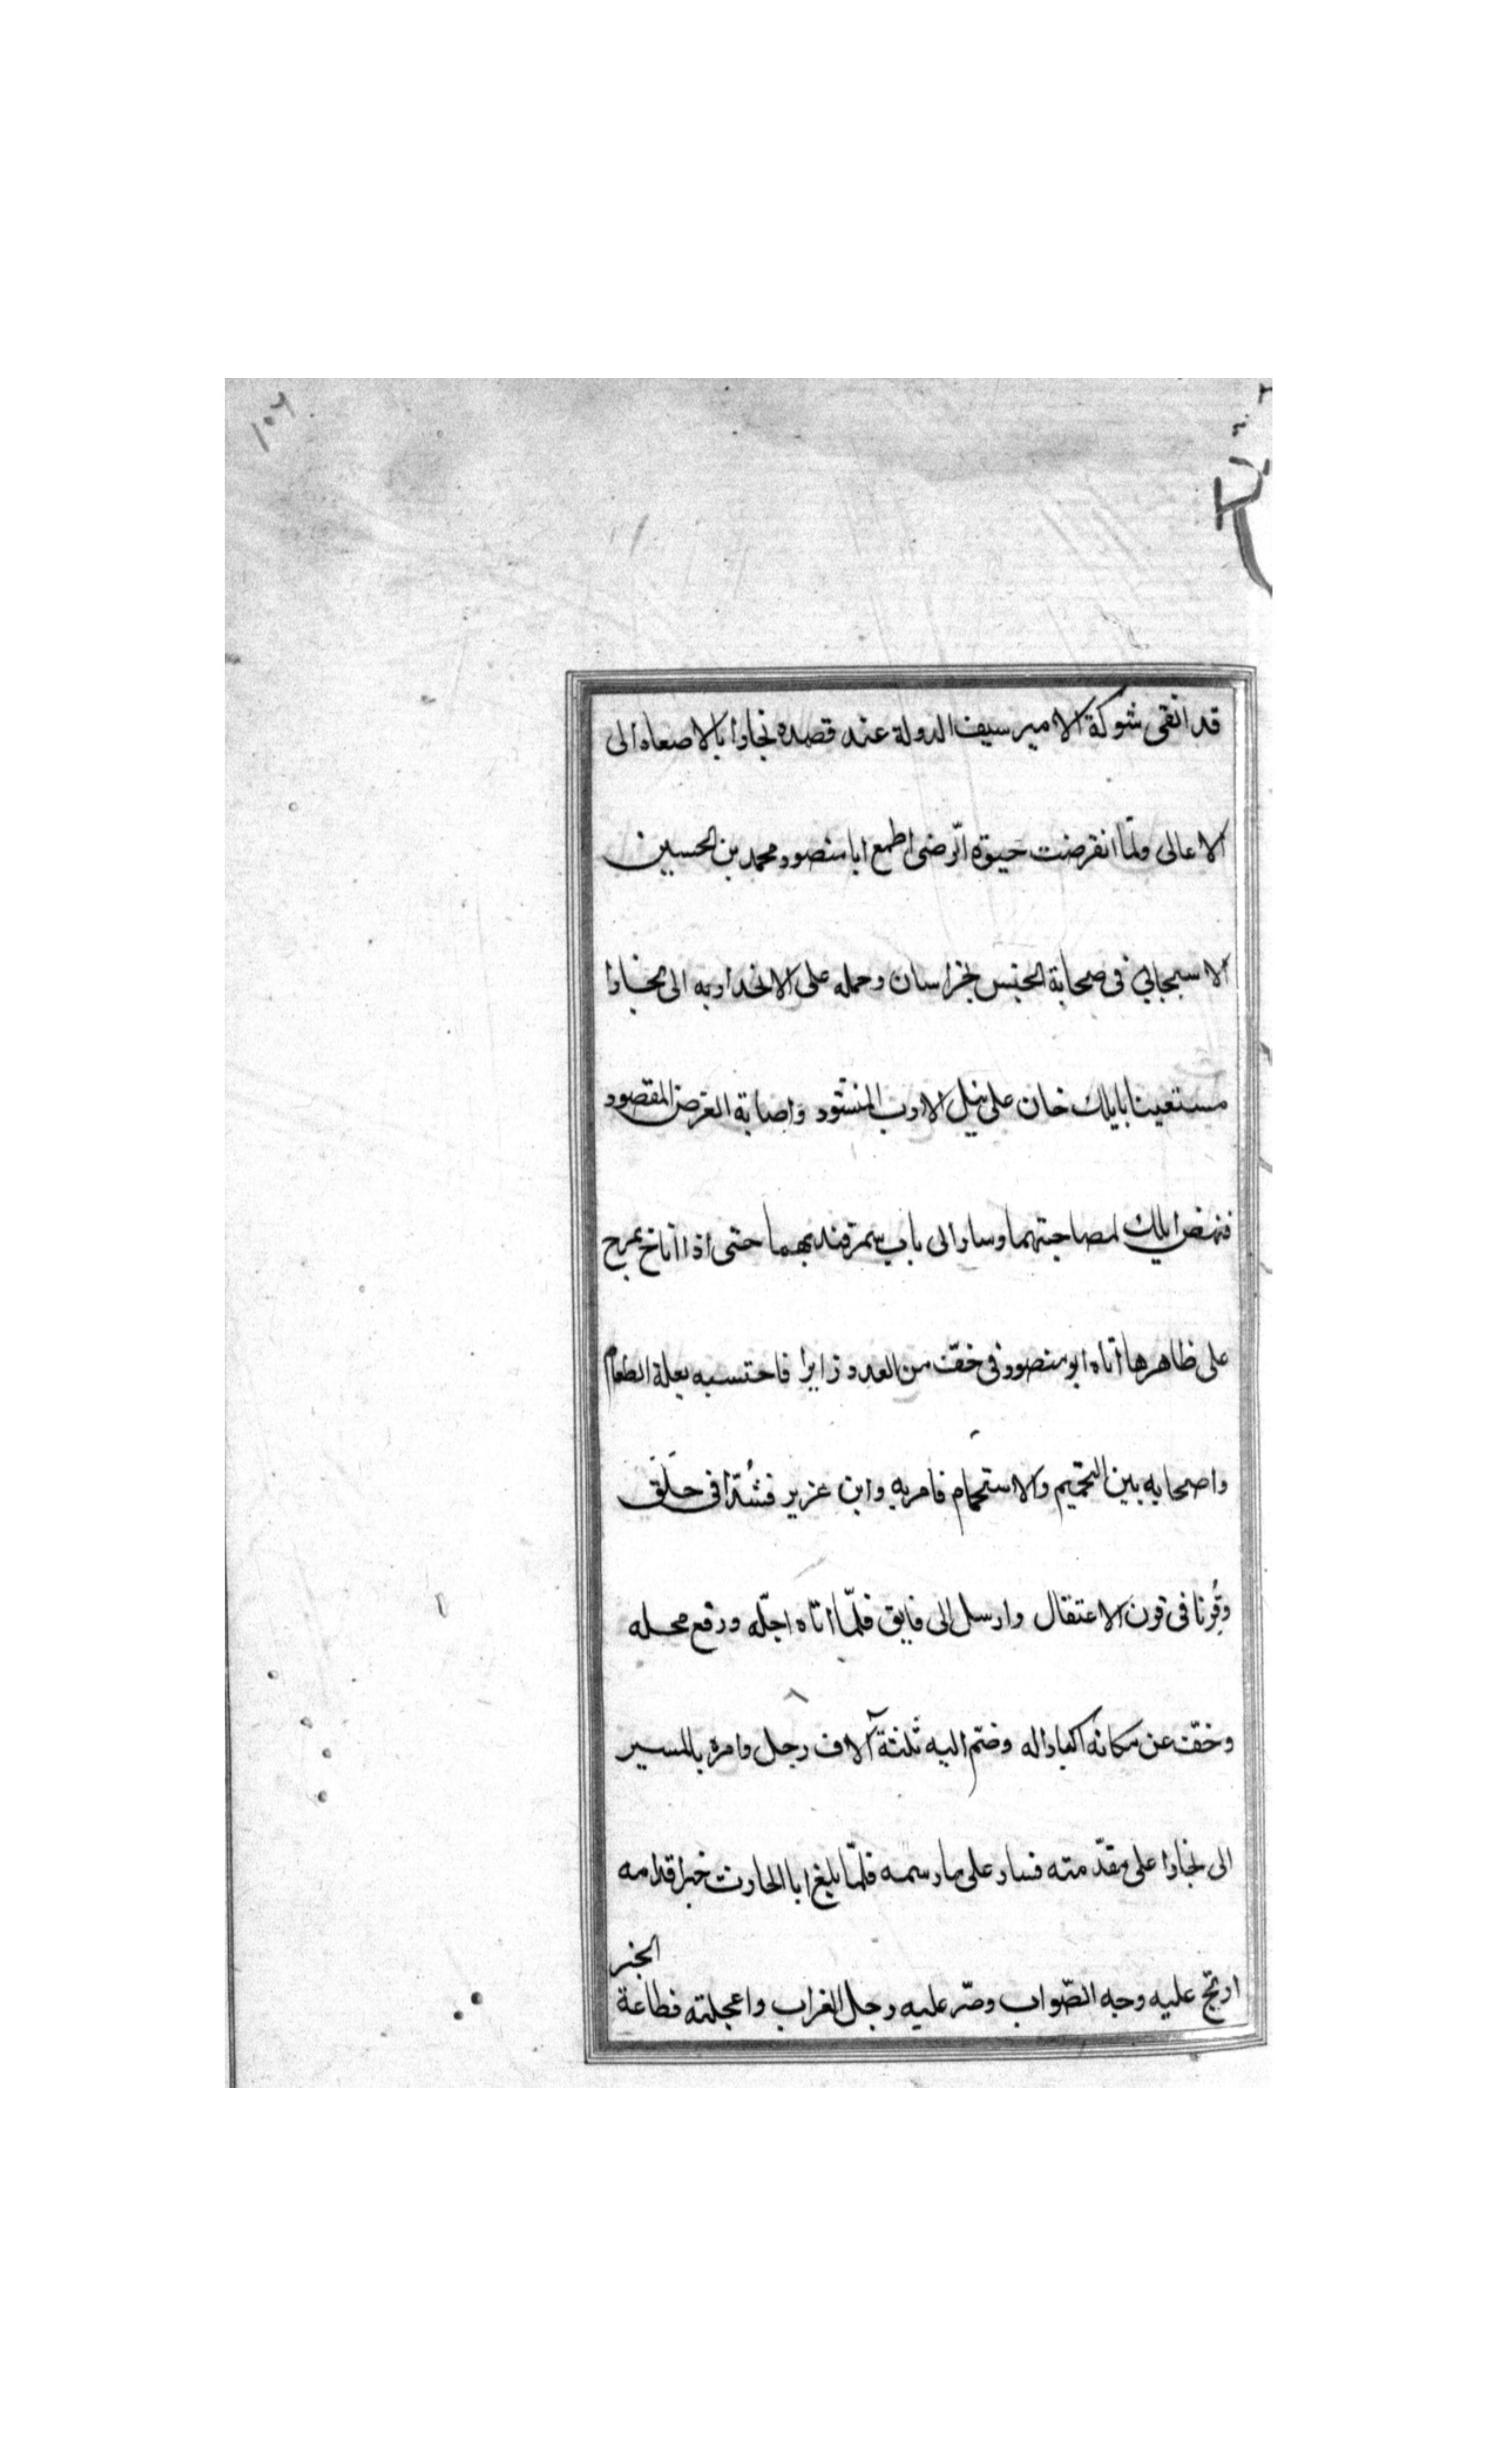 ١٠٦
قد اتقى شوكة الامير سيف الدولة عند قصده بخارا بالاصعاد الى
الاعالى ولمّا انقرضت حيوة الرّضى اطمع ابا منصور محمد بن الحسين
الاسبيجابي فى صحابة الجيش بخراسان وحمله على الانحدار به الى بخارا
مستعينا بايلك خان على نيل الارب المنشود واصابة الغرض المقصود
فنهض ايلك لمصاحبتهما وسار الى باب سمرقند بهما حتى اذا اناخ بمرج
على ظاهرها اتاه ابو منصور فى خفّ من العدد زايرا فاحتسبه بعلة الطعام
واصحابه بين التخييم والاستحمام فامر به وابن عزير فشُدّا فى حَلَق
وقُرنا فى قرن الاعتقال وارسل الى فايق فلمّا اتاه اجلّه ورفع محله
وخفّ عن مكانه اكبارا له وضمّ اليه ثلثة آلاف رجل وامره بالمسير
الى بخارا على مقدّمته فسار على ما رسمه فلمّا بلغ ابا الحارث خبر اقدامه
ارتج عليه وجه الصّواب وصرّ عليه رجل الغراب واعجلته فظاعة
الخبر